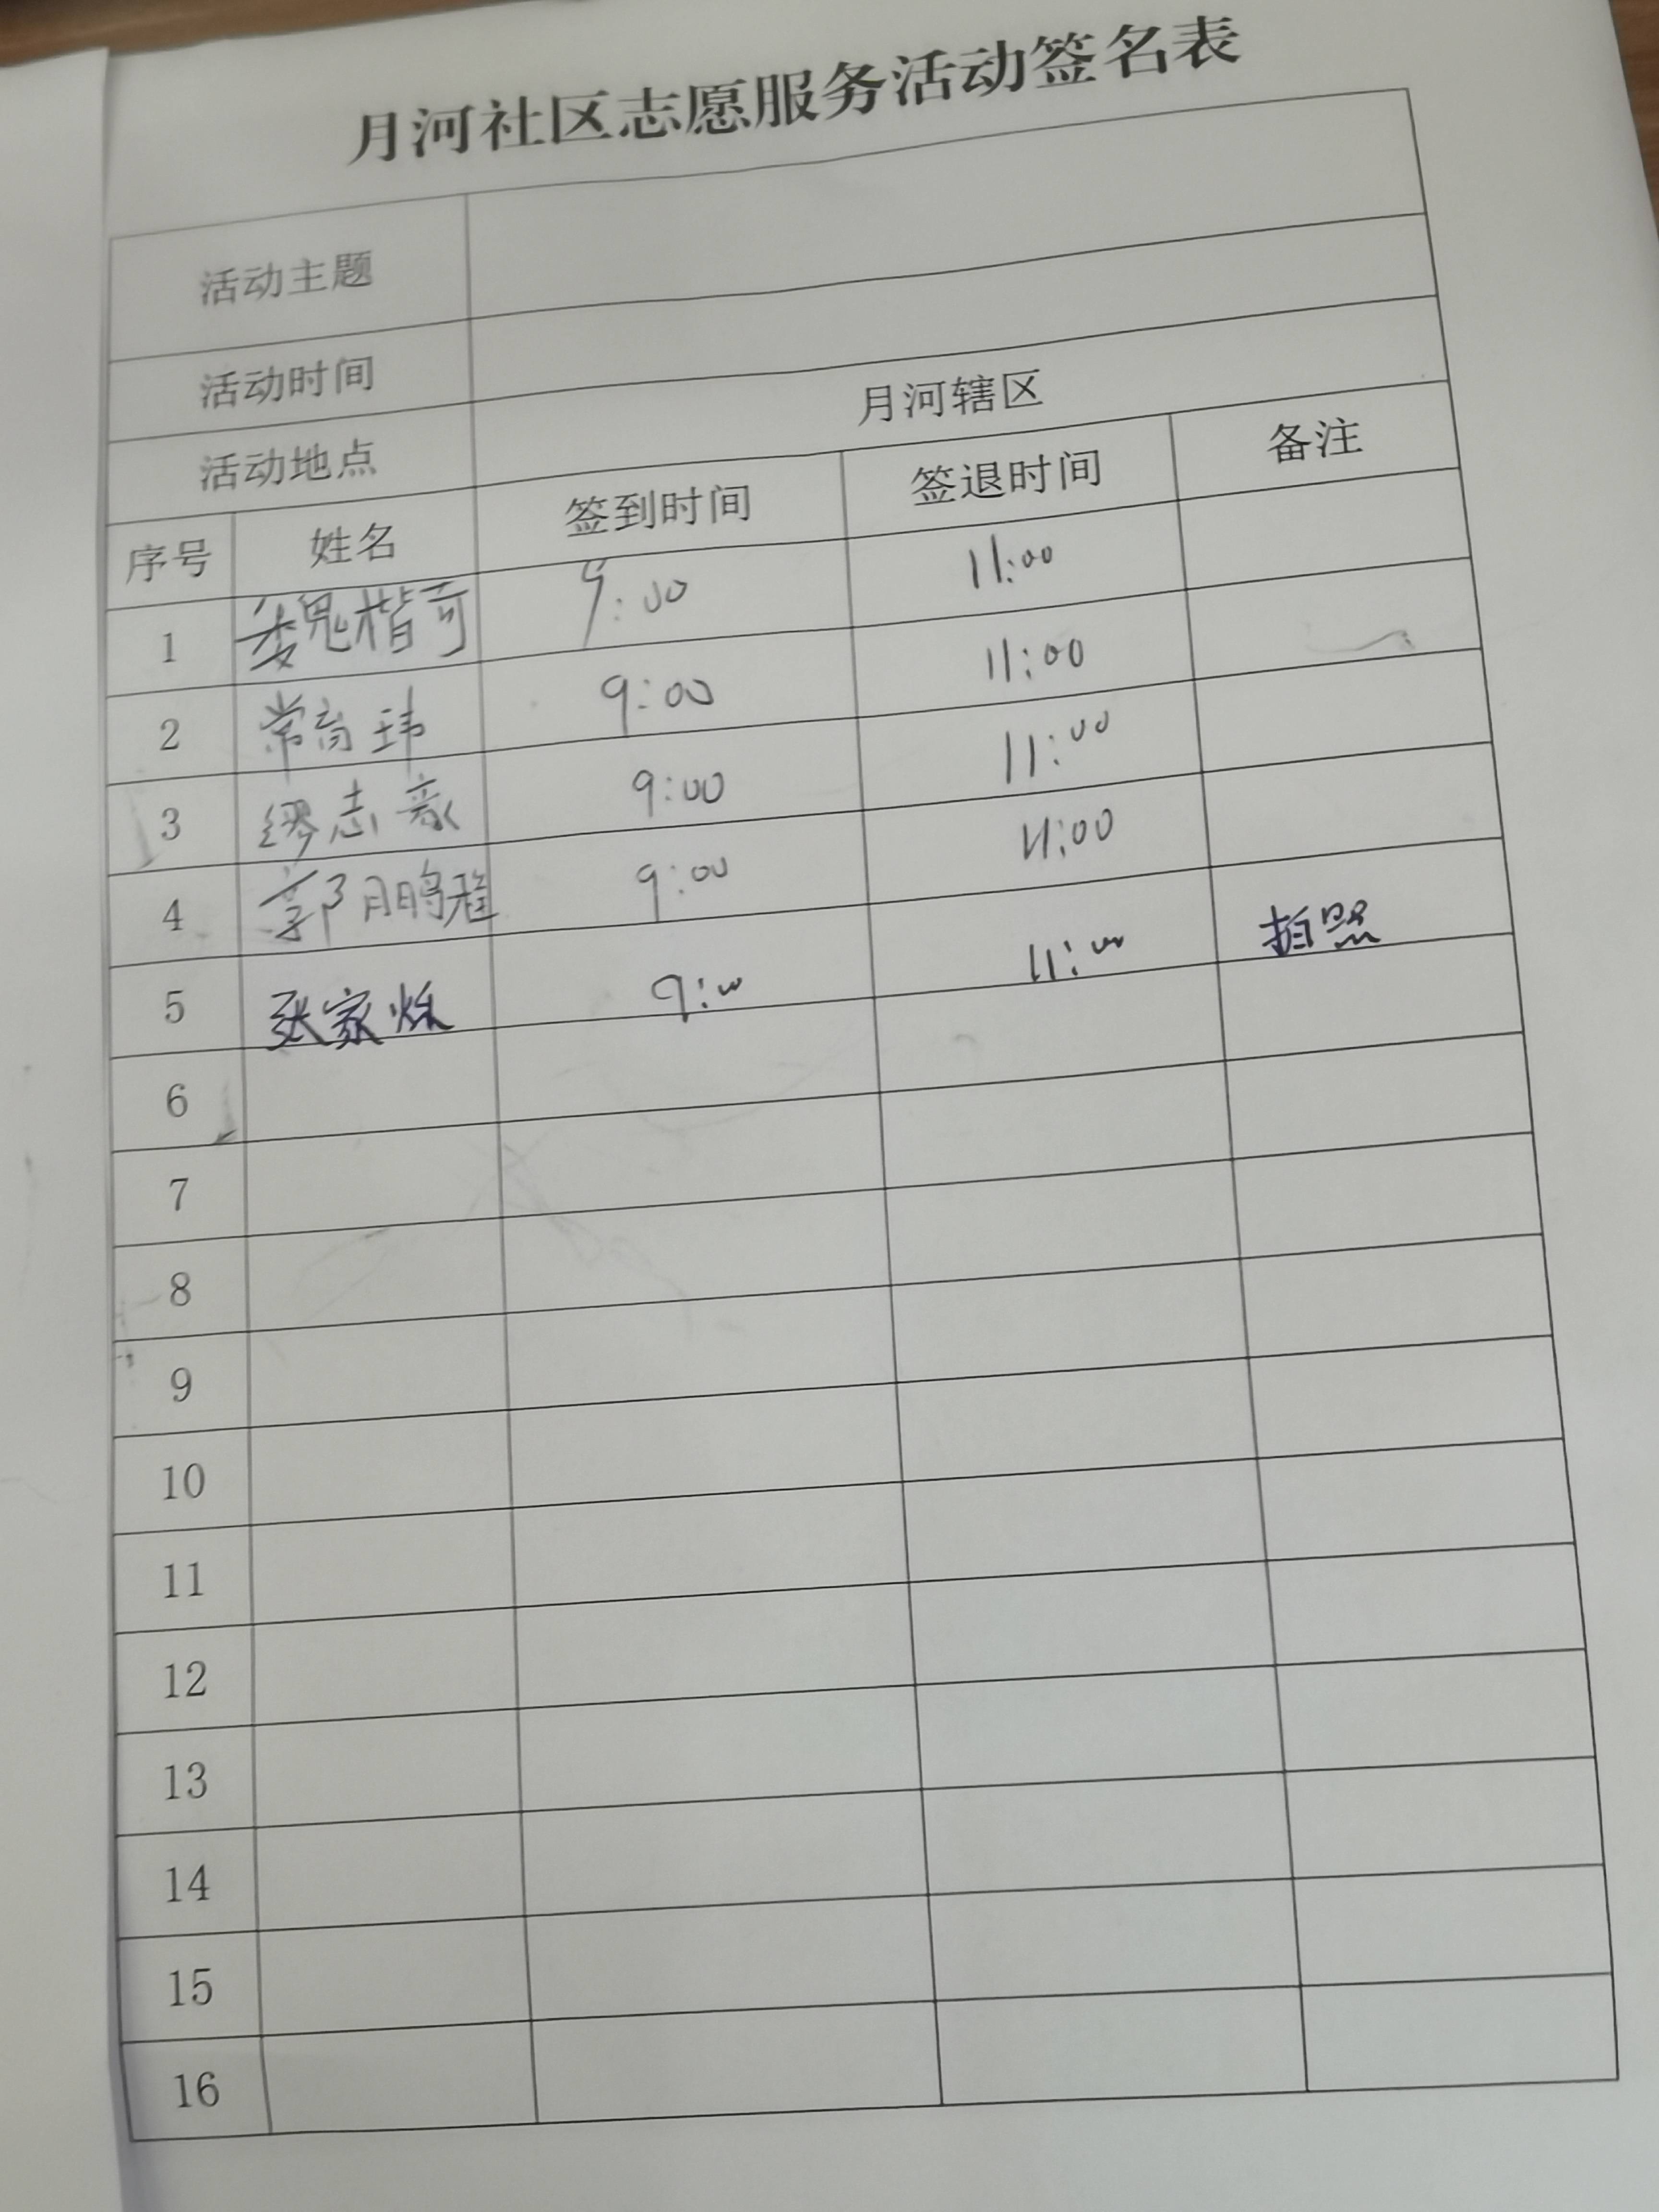 月河社区志愿服务活动签名表
活动主题
活动时间
活动地点 月河辖区
序号 姓名 签到时间 签退时间 备注
1 魏楷可 9:00 11:00
2 常高玮 9:00 11:00
3 缪志豪 9:00 11:00
4 郭鹏程 9:00 11:00
5 张家烁 9:00 11:00 拍照
6
7
8
9
10
11
12
13
14
15
16